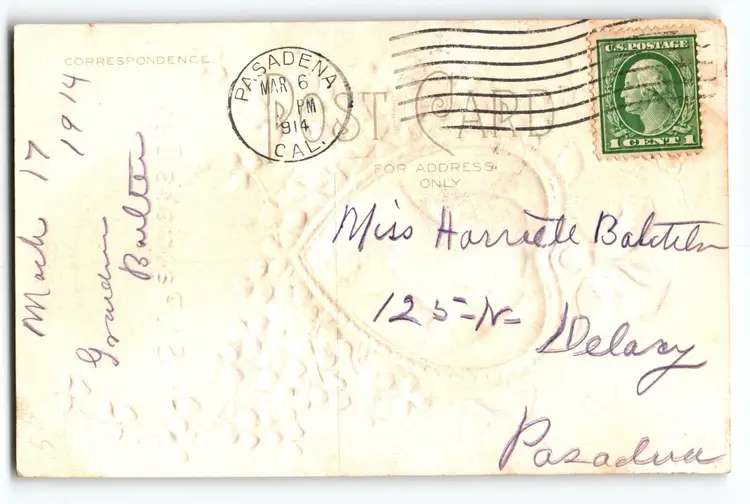 CORRESPONDENCE
PASADENA
MAR 6
PM
1914
CAL.
U.S. POSTAGE
1 CENT 1
POST CARD
FOR ADDRESS
ONLY
Miss Harriett
125-N-
Delacy
Pasadena
Mach 17 1914